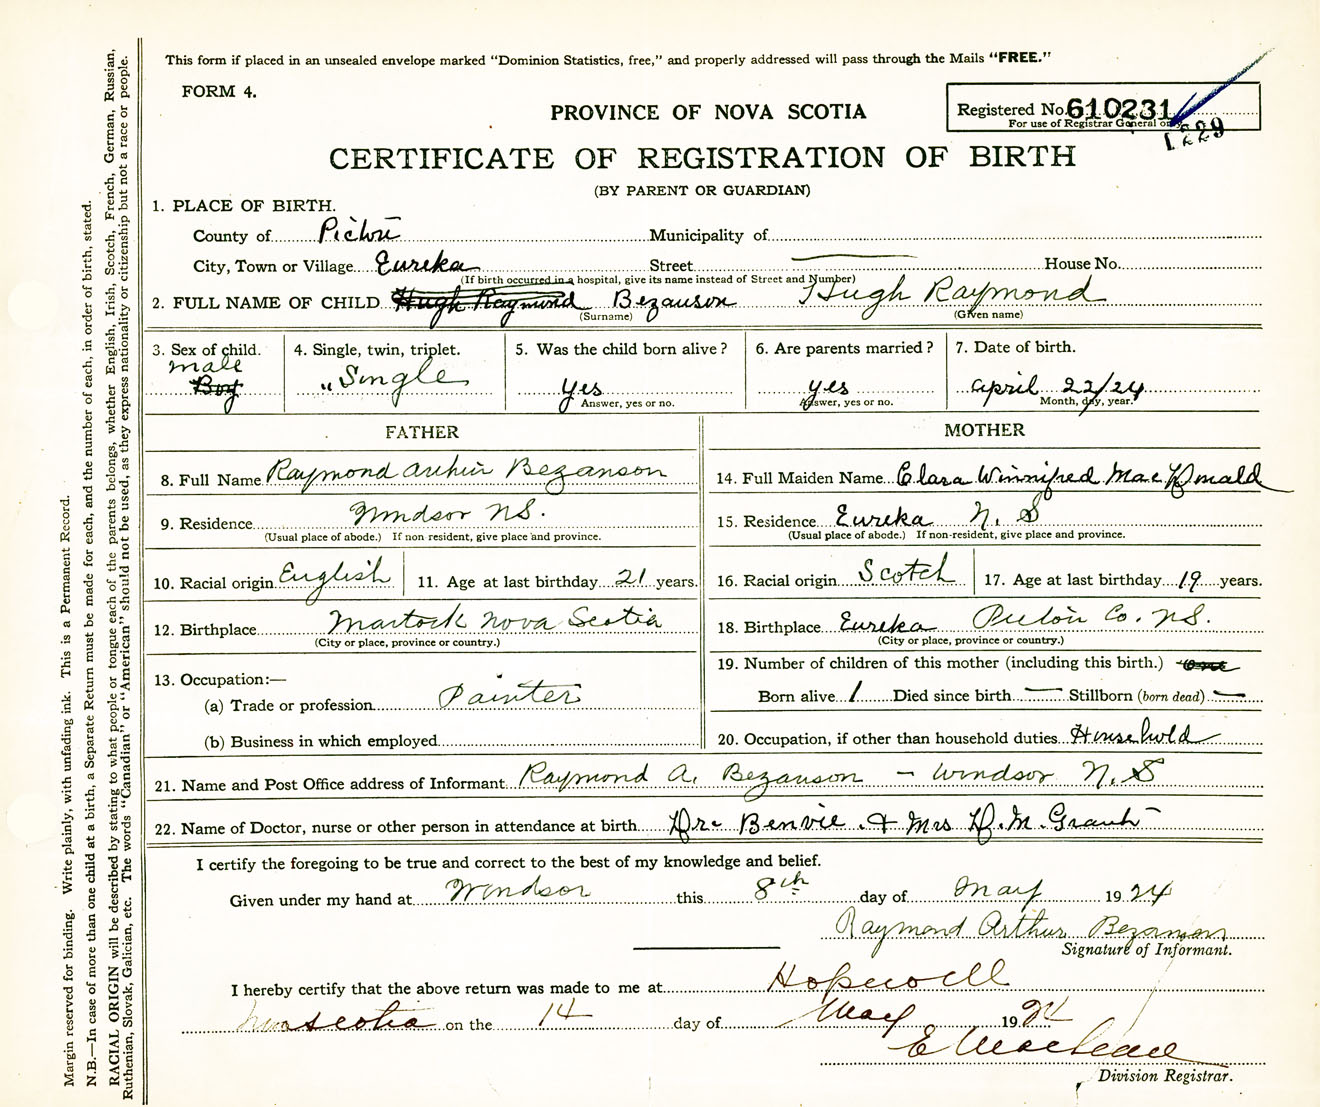 This form if placed in an unsealed envelope marked "Dominion Statistics, free," and properly addressed will pass through the Mails "FREE."
FORM 4.
PROVINCE OF NOVA SCOTIA
Registered No. 610231
For use of Registrar General only
1229
CERTIFICATE OF REGISTRATION OF BIRTH
(BY PARENT OR GUARDIAN)
1. PLACE OF BIRTH.
County of Pictou Municipality of
City, Town or Village Eureka Street — House No.
(If birth occurred in a hospital, give its name instead of Street and Number)
2. FULL NAME OF CHILD Hugh Raymond Bezanson Hugh Raymond
(Surname) (Given name)
3. Sex of child. male Boy
4. Single, twin, triplet. " Single
5. Was the child born alive? yes
Answer, yes or no.
6. Are parents married? yes
Answer, yes or no.
7. Date of birth. April 22/24
Month, day, year.
FATHER
8. Full Name Raymond Arthur Bezanson
9. Residence Windsor N.S.
(Usual place of abode.) If non resident, give place and province.
10. Racial origin English 11. Age at last birthday 21 years.
12. Birthplace Martock Nova Scotia
(City or place, province or country.)
13. Occupation:—
(a) Trade or profession Painter
(b) Business in which employed
MOTHER
14. Full Maiden Name Clara Winnifred MacDonald
15. Residence Eureka N. S
(Usual place of abode.) If non-resident, give place and province.
16. Racial origin Scotch 17. Age at last birthday 19 years.
18. Birthplace Eureka Pictou Co. N.S.
(City or place, province or country.)
19. Number of children of this mother (including this birth.)
Born alive 1 Died since birth — Stillborn (born dead) —
20. Occupation, if other than household duties Household
21. Name and Post Office address of Informant Raymond A. Bezanson – Windsor N.S
22. Name of Doctor, nurse or other person in attendance at birth Dr. Benvie & Mrs D. M. Grant
I certify the foregoing to be true and correct to the best of my knowledge and belief.
Given under my hand at Windsor this 8th day of May 1924
Raymond Arthur Bezanson
Signature of Informant.
I hereby certify that the above return was made to me at Hopewell
Nova Scotia on the 14 day of May 1924
E MacLean
Division Registrar.
Margin reserved for binding. Write plainly, with unfading ink. This is a Permanent Record.
N.B.—In case of more than one child at a birth, a Separate Return must be made for each, and the number of each, in order of birth, stated.
RACIAL ORIGIN will be described by stating to what people or tongue each of the parents belongs, whether English, Irish, Scotch, French, German, Russian,
Ruthenian, Slovak, Galician, etc. The words "Canadian" or "American" should not be used, as they express nationality or citizenship but not a race or people.